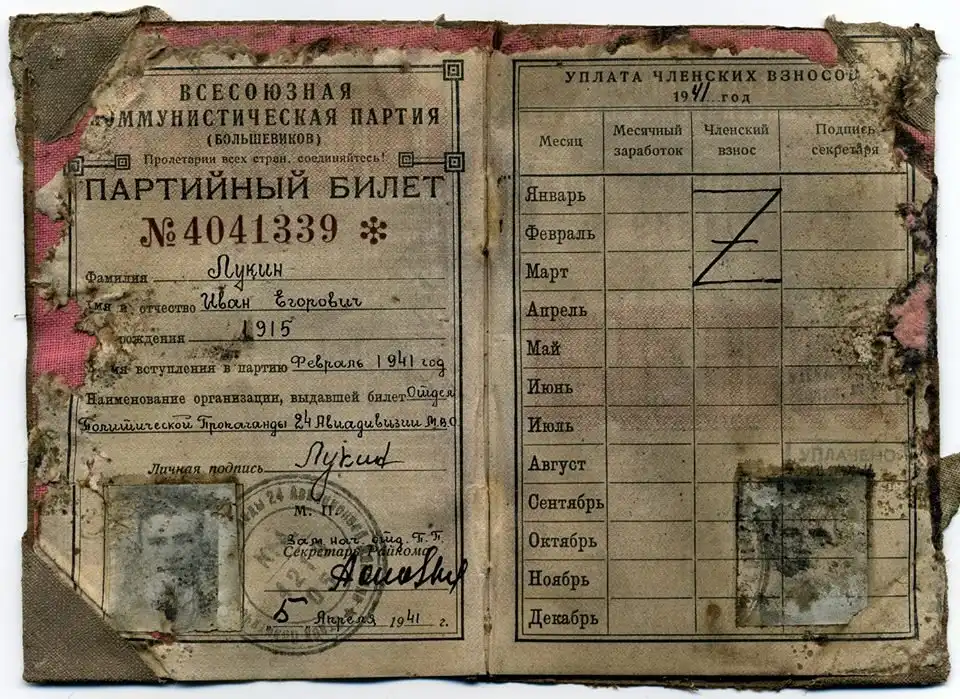 ВСЕСОЮЗНАЯ
КОММУНИСТИЧЕСКАЯ ПАРТИЯ
(БОЛЬШЕВИКОВ)
Пролетарии всех стран, соединяйтесь!
ПАРТИЙНЫЙ БИЛЕТ
№ 4041339
Фамилия Лукин
Имя и отчество Иван Егорович
рождения 1915
вступления в партию Февраль 1941 год
Наименование организации, выдавшей билет Отдел
Политической Пропаганды 24 Авиадивизии М.В.О.
Личная подпись Лукин
М. П.
Зам. нач. отд. П.П.
Секретарь Райкома
5 Апреля 1941 г.
УПЛАТА ЧЛЕНСКИХ ВЗНОСОВ
1941 год
Месяц Месячный заработок Членский взнос Подпись секретаря
Январь
Февраль
Март
Апрель
Май
Июнь
Июль
Август
УПЛАЧЕНО
Сентябрь
Октябрь
Ноябрь
Декабрь